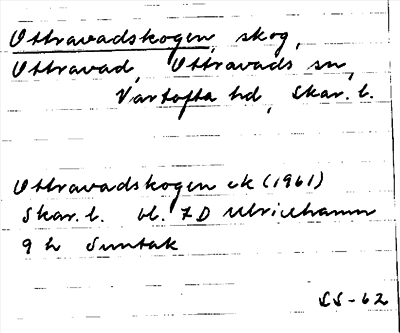 Ottravadskogen, skog,
Ottravad, Ottravads sn,
Vartofta hd, Skar. l.
Ottravadskogen ek (1961)
Skar. l. bl. 7D Ulricehamn
9 h Suntak
SS-62